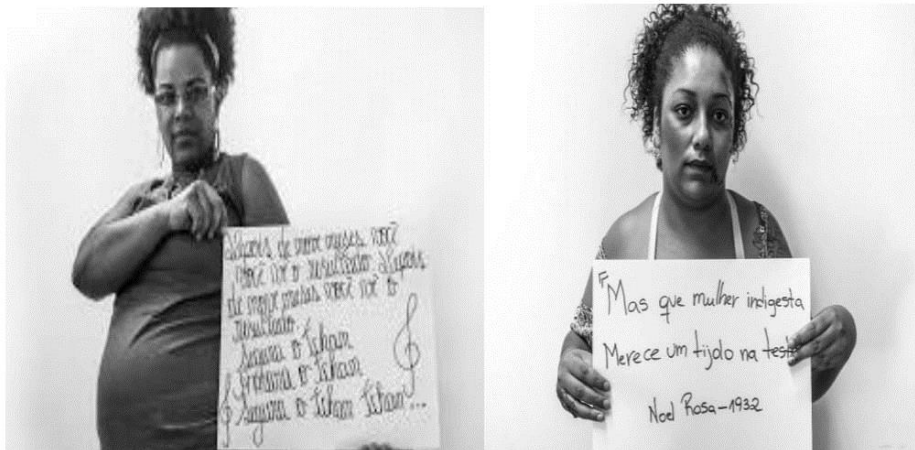 depois de nove meses você
você vê o resultado depois
de nove meses você vê o
resultado
segura o tchan
amarra o tchan
segura o tchan tchan...
"Mas que mulher indigesta
Merece um tijolo na testa
Noel Rosa-1932